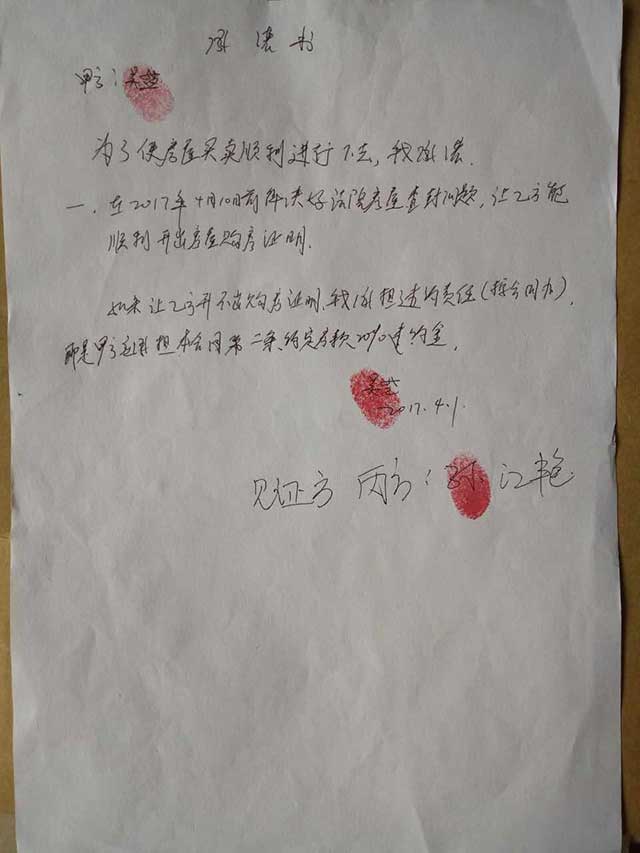 承诺书
甲方：吴
为了使房屋买卖顺利进行下去，我承诺.
一．在2017年4月10日前解决好法院房屋查封问题，让乙方能
顺利开出房屋购房证明.
如果让乙方开不出购房证明，我承担违约责任(按合同办)，
即是甲方应承担本合同第二条约定房款20%违约金，
吴
2017.4.1.
见证方 丙方： 江艳